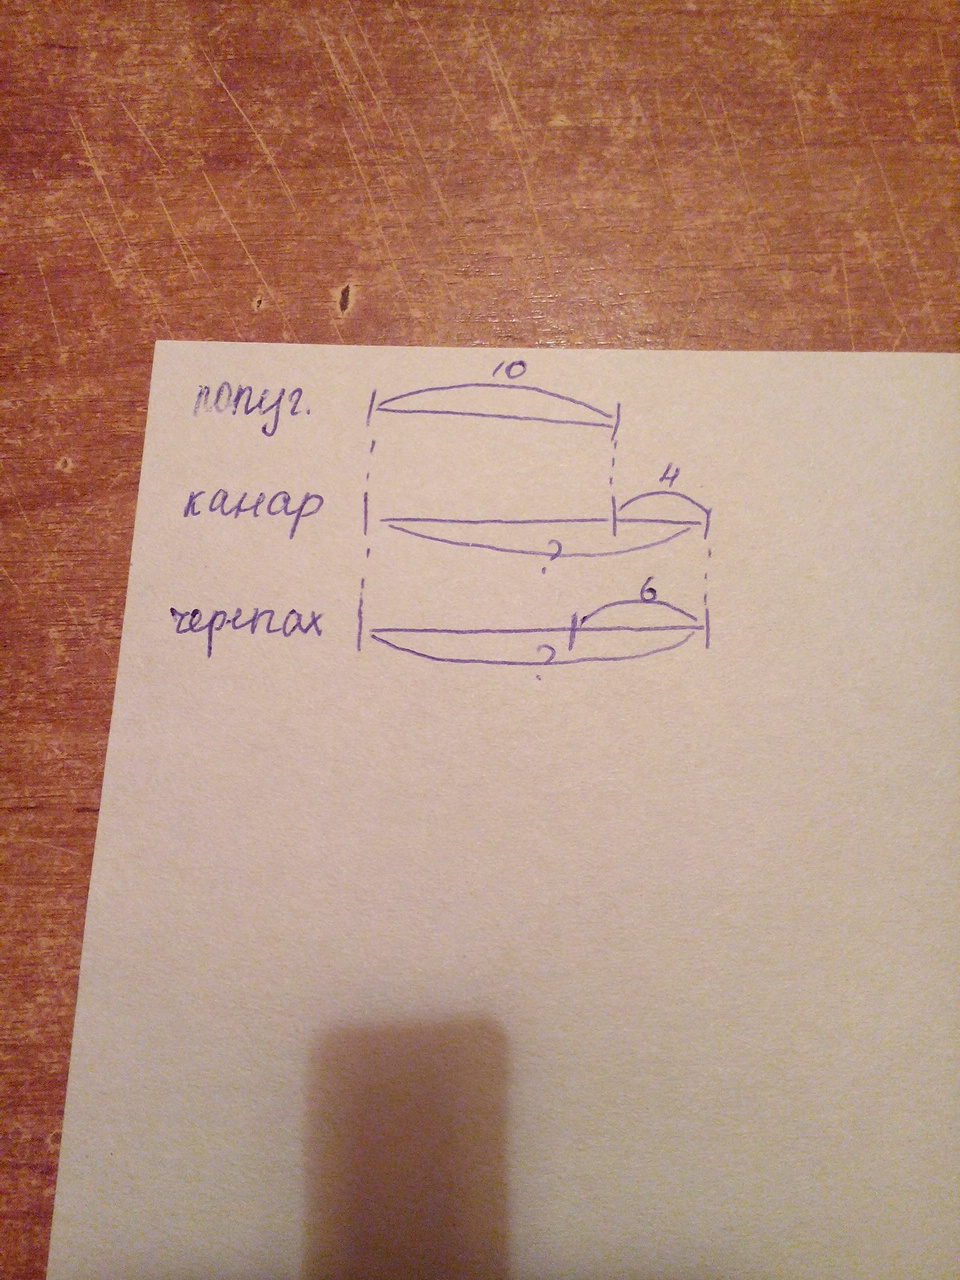 10
попуг.
4
канар
?
6
черепах
?